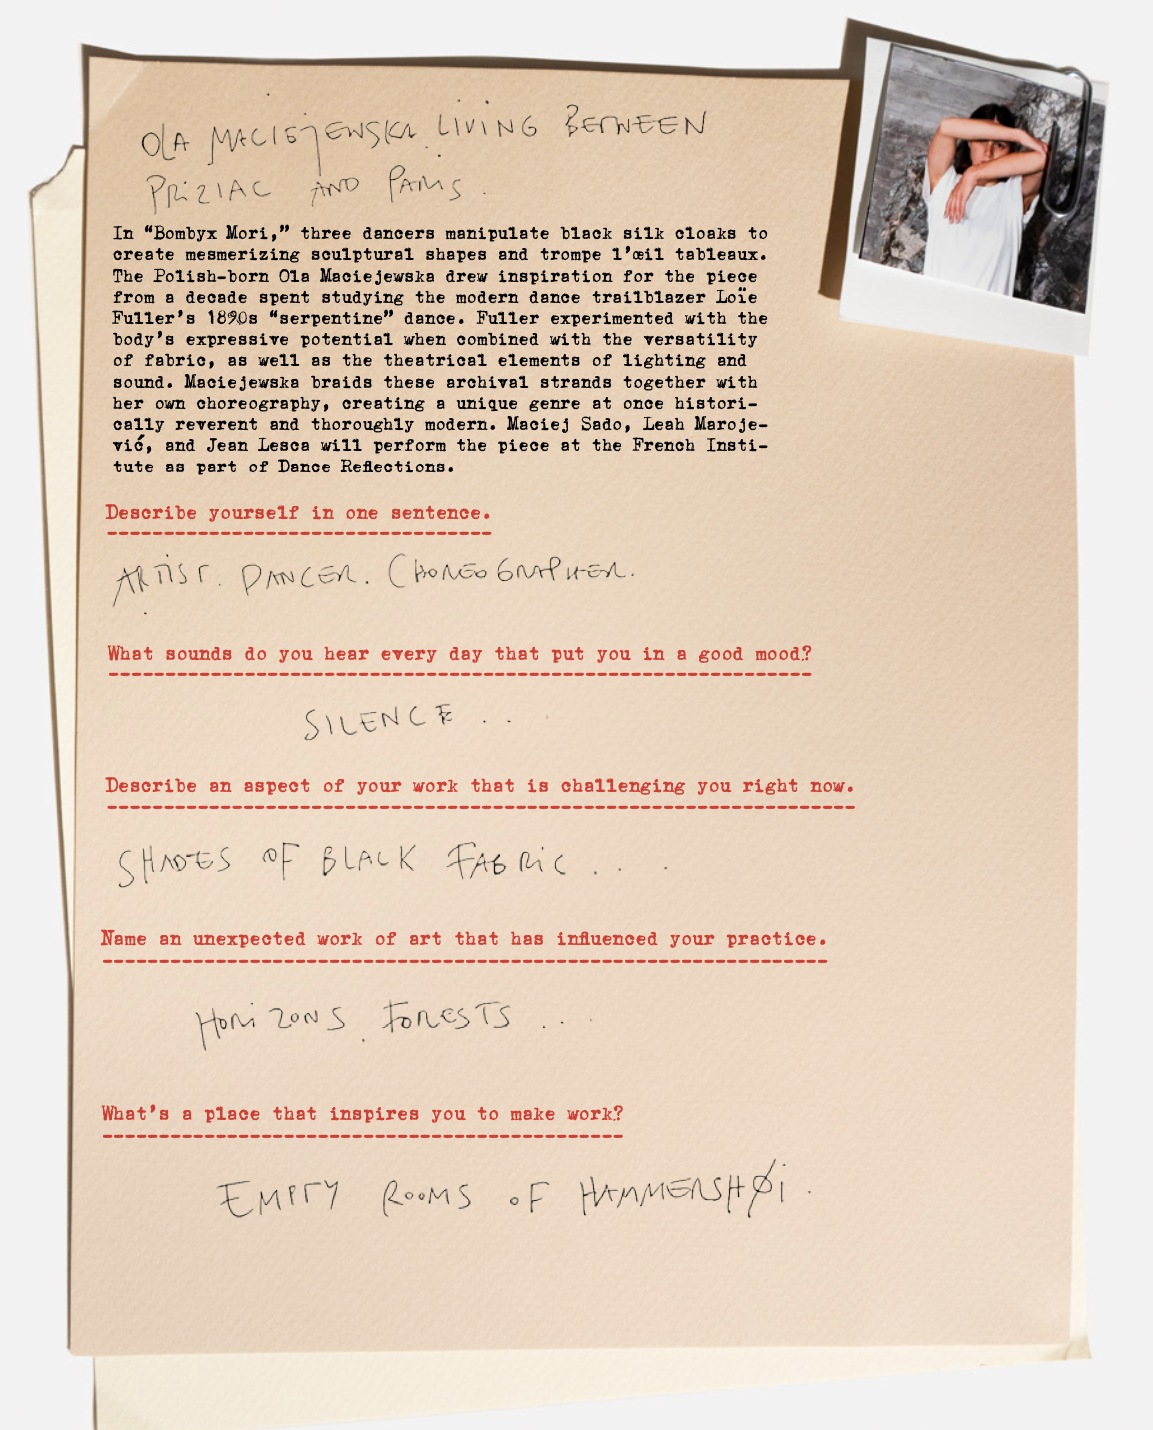 OLA MACIEJEWSKA. LIVING BETWEEN
PRIZIAC AND PARIS.
In “Bombyx Mori,” three dancers manipulate black silk cloaks to
create mesmerizing sculptural shapes and trompe l’œil tableaux.
The Polish-born Ola Maciejewska drew inspiration for the piece
from a decade spent studying the modern dance trailblazer Loïe
Fuller’s 1890s “serpentine” dance. Fuller experimented with the
body’s expressive potential when combined with the versatility
of fabric, as well as the theatrical elements of lighting and
sound. Maciejewska braids these archival strands together with
her own choreography, creating a unique genre at once histori-
cally reverent and thoroughly modern. Maciej Sado, Leah Maroje-
vić, and Jean Lesca will perform the piece at the French Insti-
tute as part of Dance Reflections.
Describe yourself in one sentence.
ARTIST. DANCER. CHOREOGRAPHER.
What sounds do you hear every day that put you in a good mood?
SILENCE . . .
Describe an aspect of your work that is challenging you right now.
SHADES OF BLACK FABRIC . . .
Name an unexpected work of art that has influenced your practice.
HORIZONS. FORESTS . . .
What’s a place that inspires you to make work?
EMPTY ROOMS OF HAMMERSHØI.